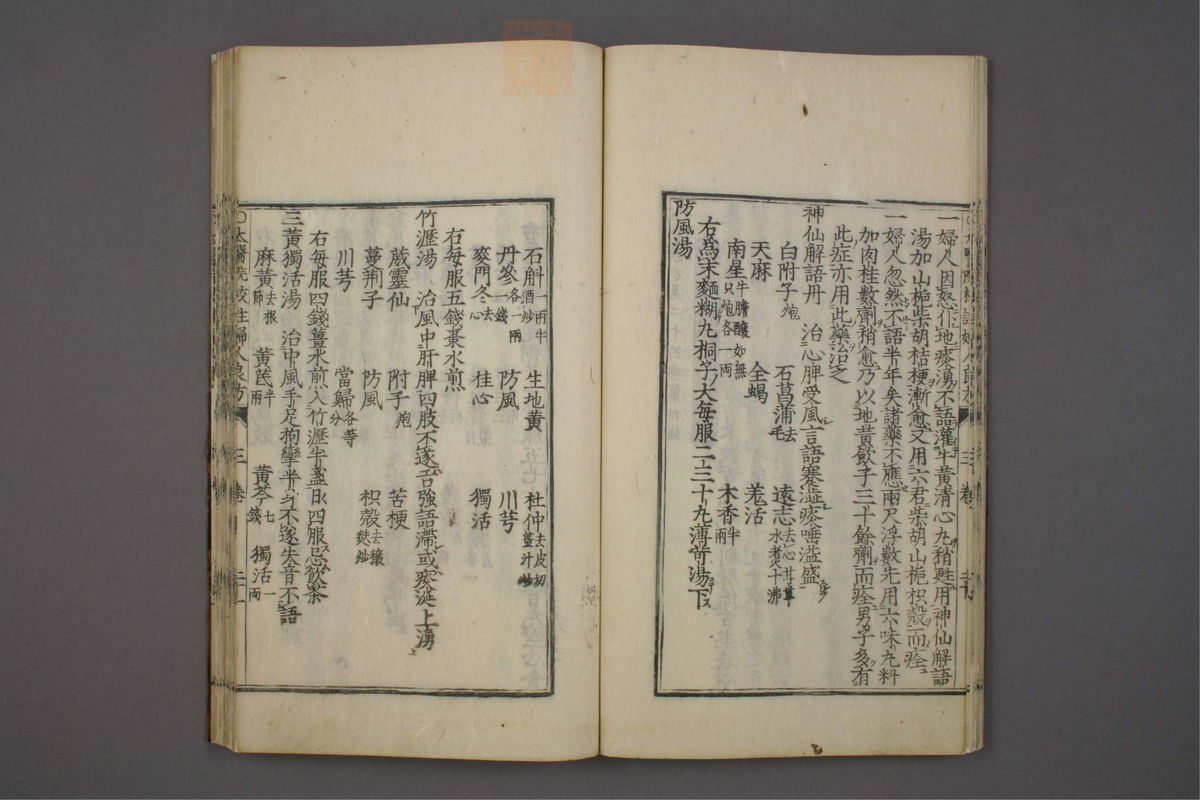 一婦人因怒仆地痰湧不語灌牛黄清心丸稍甦用神仙解語
湯加山梔柴胡桔梗漸愈又用六君柴胡山梔枳殼而痊
一婦人忽然不語半年矣諸藥不應兩尺浮數先用六味丸料
加肉桂數劑稍愈乃以地黄飲子三十餘劑而痊男子多有
此症亦用此藥治之
神仙解語丹 治心脾受風言語蹇澁痰唾溢盛
白附子炮 石菖蒲去毛 遠志去心甘草水煮十沸
天麻 全蝎 羌活
南星牛膽釀如無只炮各一兩 木香半兩
右爲末麥糊丸桐子大每服二三十丸薄荷湯下
防風湯
石斛一兩半酒炒 生地黄 杜仲去皮切薑汁炒
丹參各一兩一錢 防風 川芎
麥門冬去心 桂心 獨活
右每服五錢棗水煎
竹瀝湯 治風中肝脾四肢不遂舌強語滯或痰涎上湧
葳靈仙 附子炮 苦梗
蔓荆子 防風 枳殼去穰麩炒
川芎 當歸各等分
右每服四錢薑水煎入竹瀝半盞日四服忌飲茶
三黄獨活湯 治中風手足拘攣半身不遂失音不語
麻黄去根節 黄芪半兩 黄芩七錢 獨活一兩
〇太醫院校註婦人良方 三卷